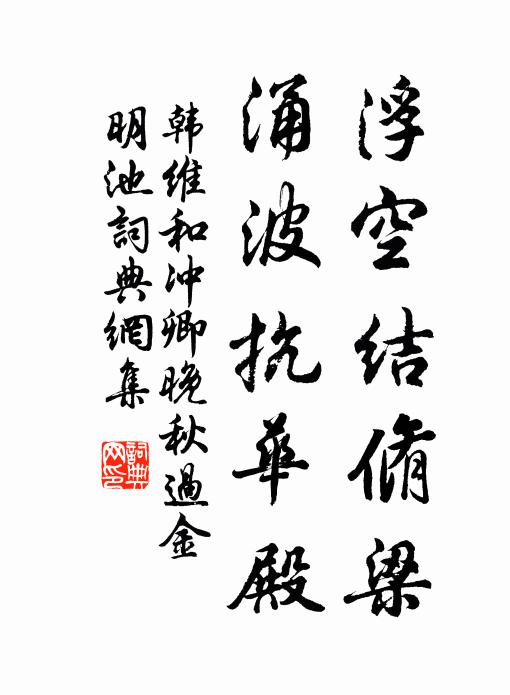 浮空結脩梁
涌波抗華殿
韩維和冲卿晚秋過金
明池詞典網集
詞典网印